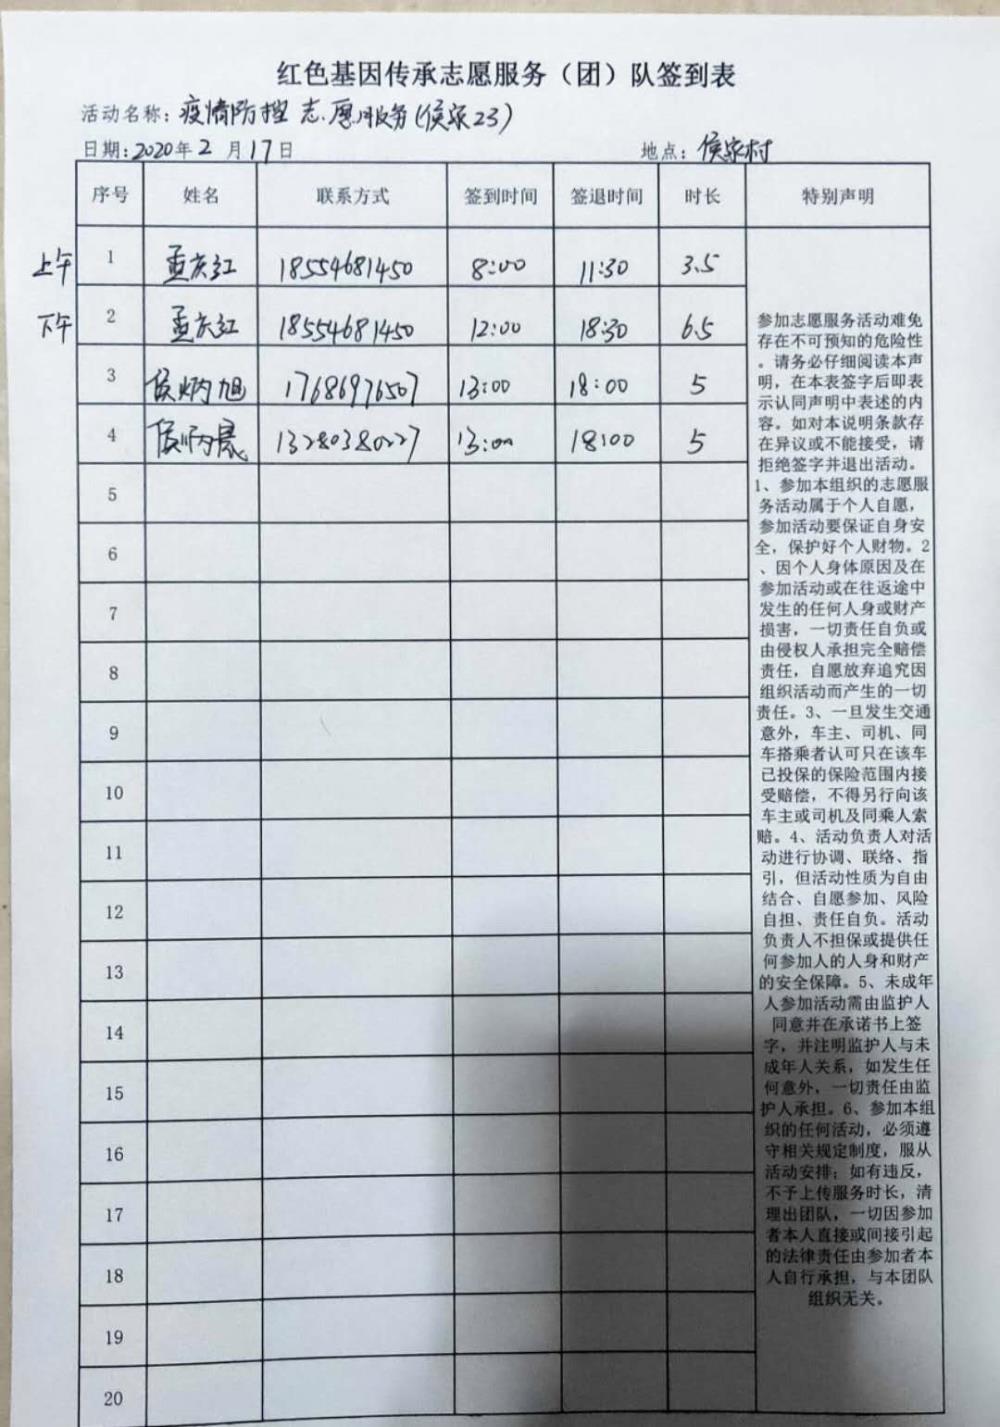 红色基因传承志愿服务（团）队签到表
活动名称：疫情防控志愿服务(侯家23)
日期：2020年2月17日 地点：侯家村
序号 姓名 联系方式 签到时间 签退时间 时长 特别声明
上午 1 孟庆红 18554681450 8:00 11:30 3.5
下午 2 孟庆红 18554681450 12:00 18:30 6.5
3 侯炳旭 17686976507 13:00 18:00 5
4 侯炳晨 13280380227 13:00 18:00 5
5
6
7
8
9
10
11
12
13
14
15
16
17
18
19
20
参加志愿服务活动难免
存在不可预知的危险性
。请务必仔细阅读本声
明，在本表签字后即表
示认同声明中表述的内
容。如对本说明条款存
在异议或不能接受，请
拒绝签字并退出活动。
1、参加本组织的志愿服
务活动属于个人自愿，
参加活动要保证自身安
全，保护好个人财物。2
、因个人身体原因及在
参加活动或在往返途中
发生的任何人身或财产
损害，一切责任自负或
由侵权人承担完全赔偿
责任，自愿放弃追究因
组织活动而产生的一切
责任。3、一旦发生交通
意外，车主、司机、同
车搭乘者认可只在该车
已投保的保险范围内接
受赔偿，不得另行向该
车主或司机及同乘人索
赔。4、活动负责人对活
动进行协调、联络、指
引，但活动性质为自由
结合、自愿参加、风险
自担、责任自负。活动
负责人不担保或提供任
何参加人的人身和财产
的安全保障。5、未成年
人参加活动需由监护人
同意并在承诺书上签
字，并注明监护人与未
成年人关系，如发生任
何意外，一切责任由监
护人承担。6、参加本组
织的任何活动，必须遵
守相关规定制度，服从
活动安排；如有违反，
不予上传服务时长，清
理出团队，一切因参加
者本人直接或间接引起
的法律责任由参加者本
人自行承担，与本团队
组织无关。